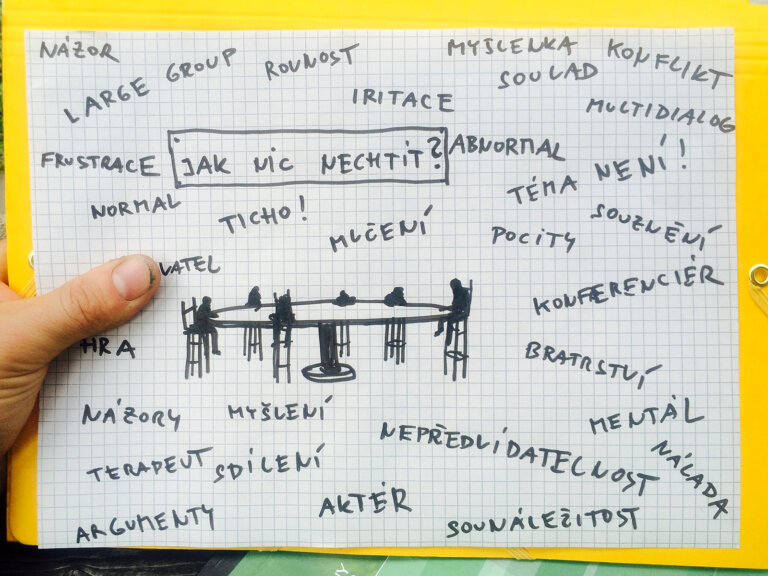 NÁZOR
LARGE GROUP
ROVNOST
MYŠLENKA
KONFLIKT
SOULAD
IRITACE
MULTIDIALOG
JAK NIC NECHTÍT?
ABNORMAL
FRUSTRACE
NENÍ!
TÉMA
NORMAL
TICHO!
MLČENÍ
POCITY
SOUZNĚNÍ
VATEL
KONFERENCIÉR
HRA
BRATRSTVÍ
NÁZORY
MYŠLENÍ
MENTÁL
NEPŘEDVÍDATELNOST
NÁLADA
TERAPEUT
SDÍLENÍ
AKTÉR
ARGUMENTY
SOUNÁLEŽITOST